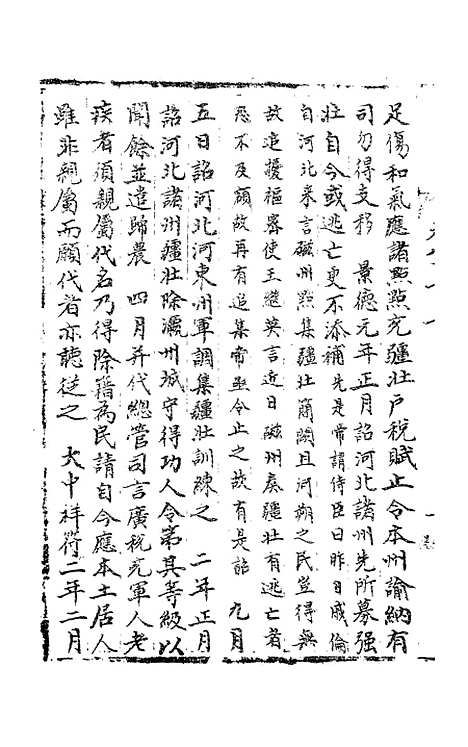 足傷和氣應諸點點充彊壯戶稅賦止令本州諭納有
司勿得支移 景德元年正月詔河北諸州先所募強
壯自今或逃亡更不添補先是常謂侍臣曰昨日戚倫
自河北来言磁州點集彊壯簡閱且河朔之民豈得無
故追擾樞密使王繼英言近日磁州奏彊壯有逃亡者
恐不及額故再有追集常亟令止之故有是詔 九月
五日詔河北河東州軍調集彊壯訓練之 二年正月
詔河北諸州彊壯除瀛州城守得功人令第其等級以
聞餘並遣歸農 四月并代總管司言廣稅充軍人老
疾者須親屬代名乃得除籍為民請自今應本土居人
雖非親屬而願代者亦聽從之 大中祥符二年二月